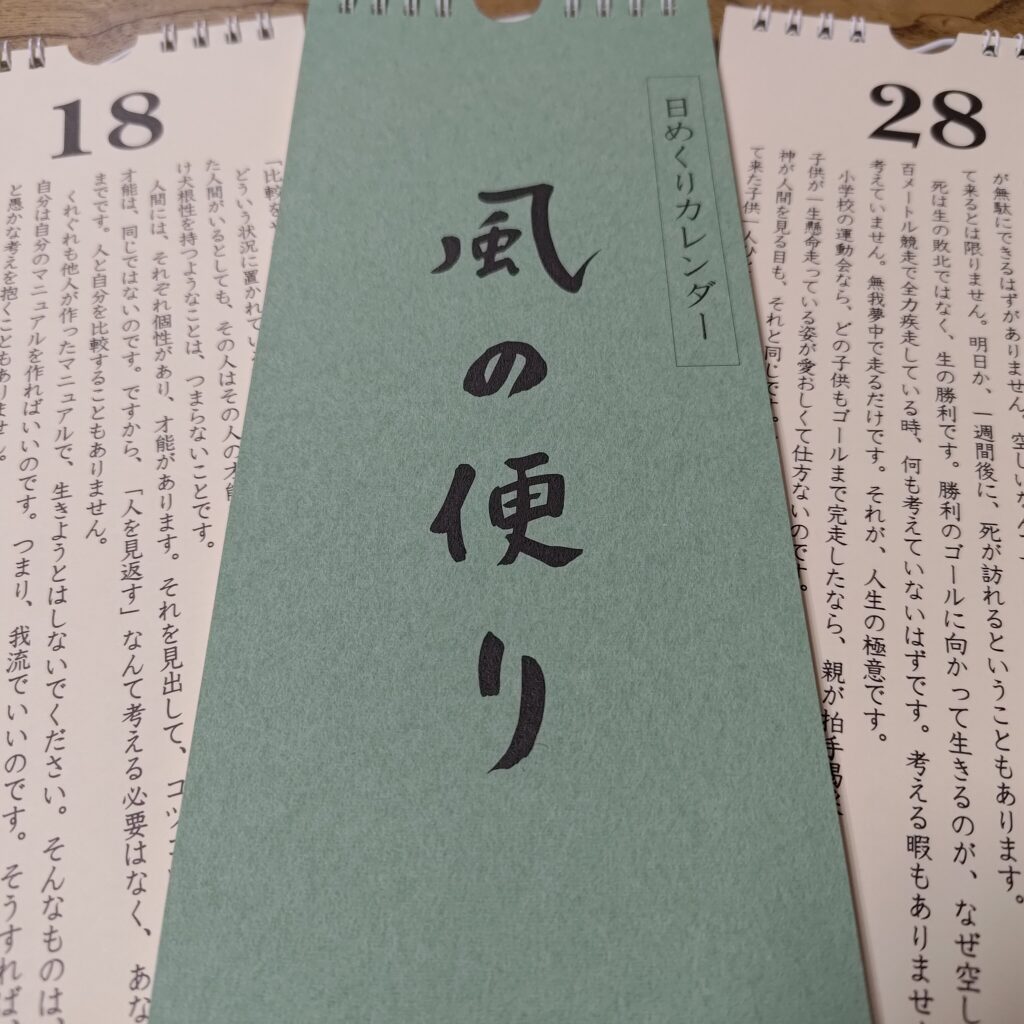 日めくりカレンダー
風の便り
18
「比較を
どういう状況に置かれてい
た人間がいるとしても、その人はその人の才能
け犬根性を持つようなことは、つまらないことです。
人間には、それぞれ個性があり、才能があります。それを見出して、コツ
才能は、同じではないのです。ですから、「人を見返す」なんて考える必要はなく、あな
までです。人と自分を比較することもありません。
くれぐれも他人が作ったマニュアルで、生きようとはしないでください。そんなものは、
自分は自分のマニュアルを作ればいいのです。つまり、我流でいいのです。そうすれば、
と愚かな考えを抱くこともありません。
28
が無駄にできるはずがありません。空しいなんて
て来るとは限りません。明日か、一週間後に、死が訪れるということもあります。
死は生の敗北ではなく、生の勝利です。勝利のゴールに向かって生きるのが、なぜ空し
百メートル競走で全力疾走している時、何も考えていないはずです。考える暇もありませ
考えていません。無我夢中で走るだけです。それが、人生の極意です。
小学校の運動会なら、どの子供もゴールまで完走したなら、親が拍手喝采
子供が一生懸命走っている姿が愛おしくて仕方ないのです。
神が人間を見る目も、それと同じです。
て来た子供一人ひと